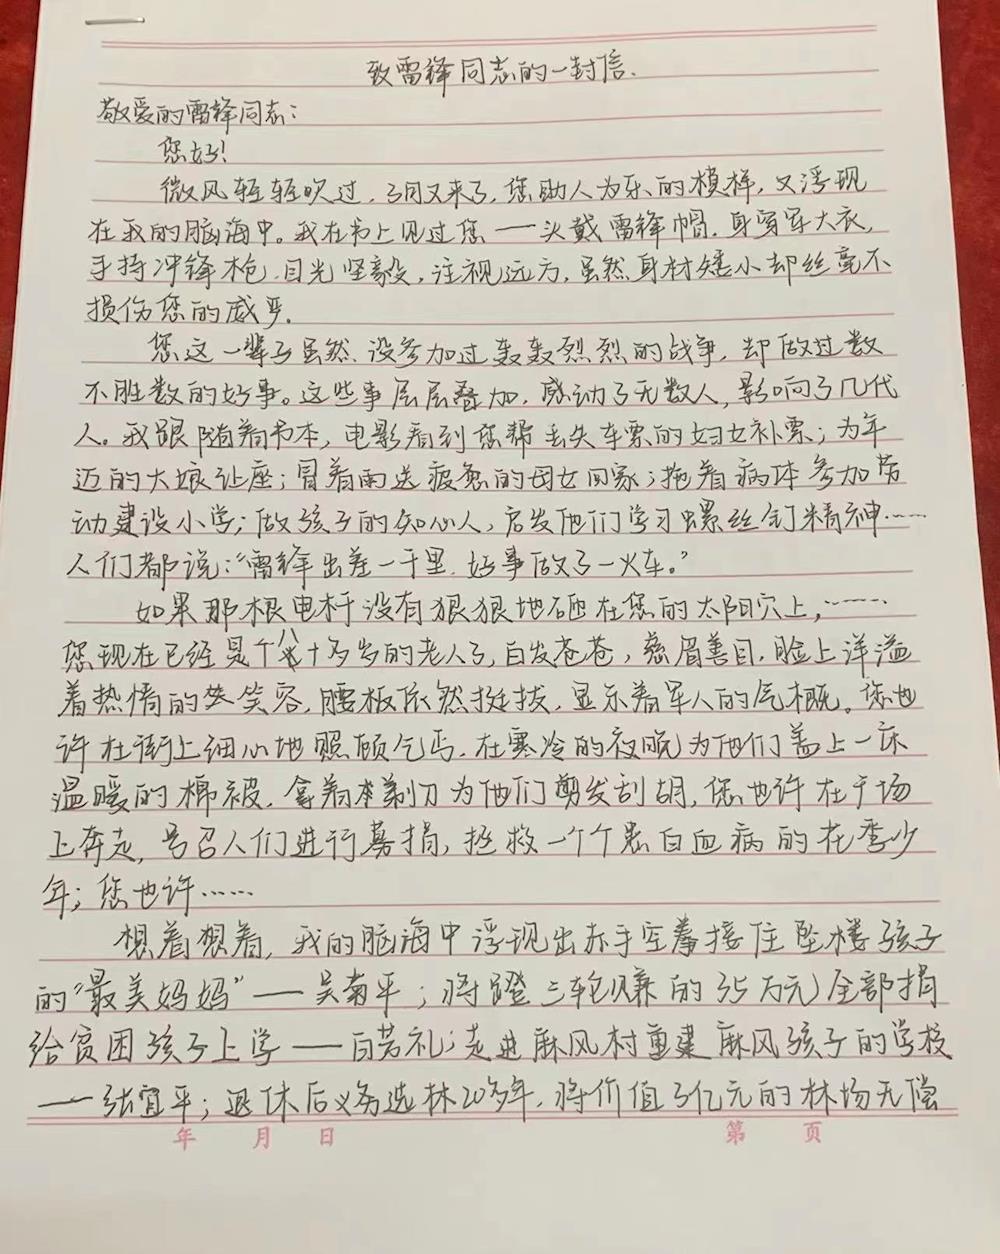 致雷锋同志的一封信.
敬爱的雷锋同志:
您好!
微风轻轻吹过,3月又来了,您助人为乐的模样,又浮现
在我的脑海中。我在书上见过您——头戴雷锋帽.身穿军大衣,
手持冲锋枪.目光坚毅,注视远方,虽然身材矮小却丝毫不
损伤您的威严.
您这一辈子虽然没参加过轰轰烈烈的战争,却做过数
不胜数的好事。这些事层层叠加,感动了无数人,影响了几代
人。我跟随着书本,电影看到您帮丢失车票的妇女补票;为年
迈的大娘让座;冒着雨送疲惫的母女回家;拖着病体参加劳
动建设小学;做孩子的知心人,启发他们学习螺丝钉精神……
人们都说:“雷锋出差一千里.好事做了一火车。”
如果那根电杆没有狠狠地砸在您的太阳穴上,……
您现在已经是个八十多岁的老人了,白发苍苍,慈眉善目,脸上洋溢
着热情的笑容,腰板依然挺拔,显示着军人的气概。您也
许在街上细心地照顾乞丐.在寒冷的夜晚为他们盖上一床
温暖的棉被.拿着剃刀为他们剪发刮胡,您也许在广场
上奔走,号召人们进行募捐,拯救一个个患白血病的花季少
年;您也许……
想着想着,我的脑海中浮现出赤手空拳接住坠楼孩子
的“最美妈妈”——吴菊平;将蹬三轮赚的35万元全部捐
给贫困孩子上学——白芳礼;走进麻风村重建麻风孩子的学校
——张宜平;退休后义务造林20多年.将价值3亿元的林场无偿
年 月 日
第 页